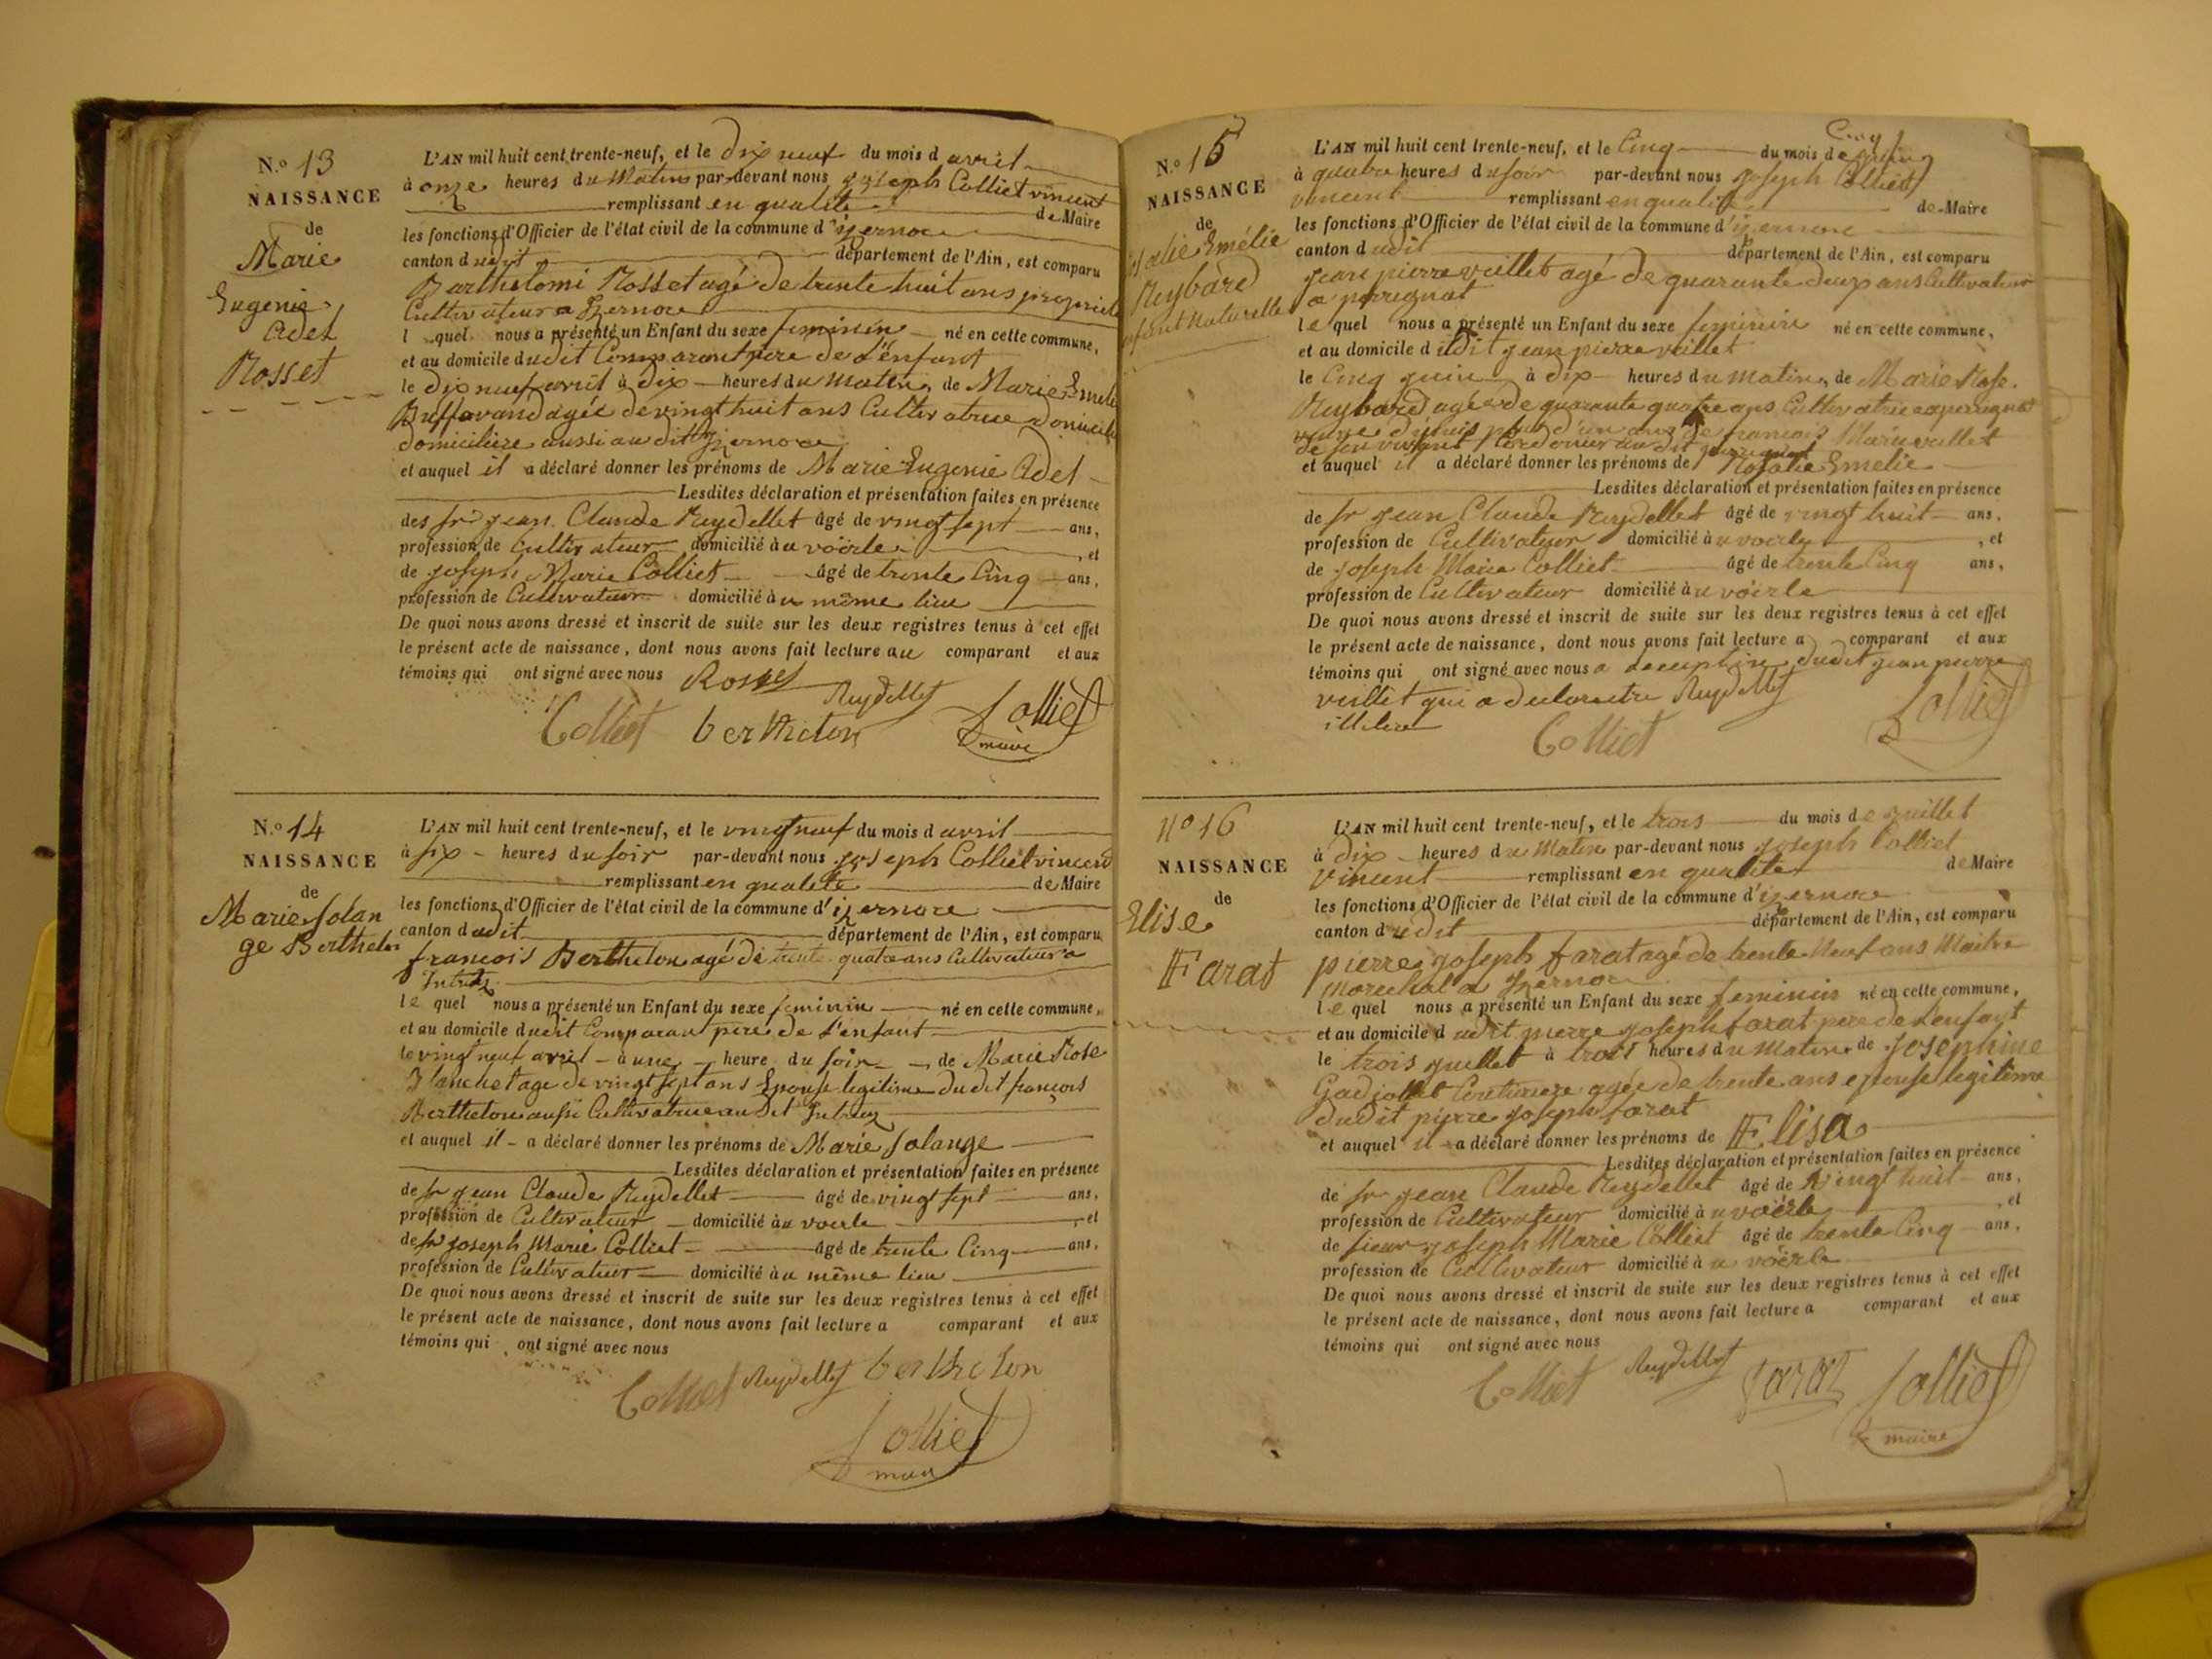 N.º 13
NAISSANCE
de
Marie
Eugenie
Adel
Rosset
L'AN mil huit cent trente-neuf, et le dix neuf du mois d avril
à onze heures du Matin par-devant nous joseph Colliet vincent
remplissant en qualité de Maire
les fonctions d'Officier de l'état civil de la commune d'izernore
canton dudit département de l'Ain, est comparu
Barthelomi Rosset agé de trente huit ans propriet
Cultivateur a Izernore
l quel nous a présenté un Enfant du sexe feminin né en cette commune,
et au domicile dudit Comparant pere de L'enfant
le dix neuf avril à dix heures du matin, de Marie Emeli
Buffavand agée de vingt huit ans Cultivatrice domicili
domiciliere aussi au dit Izernore
et auquel il a déclaré donner les prénoms de Marie Eugenie Adel
Lesdites déclaration et présentation faites en présence
des sr jean Claude Reydellet âgé de vingt sept ans,
profession de Cultivateur domicilié à u voërle, et
de joseph Marie Colliet âgé de trente Cinq ans,
profession de Cultivateur domicilié à u même lieu
De quoi nous avons dressé et inscrit de suite sur les deux registres tenus à cet effet
le présent acte de naissance, dont nous avons fait lecture au comparant et aux
témoins qui ont signé avec nous Rosset
Reydellet
Colliet berthelon Colliet
maire
N.º 14
NAISSANCE
de
Marie Solan
ge Berthelon
L'AN mil huit cent trente-neuf, et le vingt neuf du mois d avril
à six heures du soir par-devant nous joseph Colliet vincent
remplissant en qualité de Maire
les fonctions d'Officier de l'état civil de la commune d'izernore
canton dudit département de l'Ain, est comparu
francois Berthelon agé de trente quatre ans Cultivateur a
Intriaz
le quel nous a présenté un Enfant du sexe feminin né en cette commune,
et au domicile dudit Comparant pere de L'enfant
le vingt neuf avril à une heure du soir de Marie Rose
Blanchet age de vingt sept ans Epouse legitime du dit francois
Berthelon aussi Cultivatrice au dit Intriaz
et auquel il a déclaré donner les prénoms de Marie Solange
Lesdites déclaration et présentation faites en présence
de sr jean Claude Reydellet âgé de vingt sept ans,
profession de Cultivateur domicilié à u voerle, et
de sr joseph Marie Colliet âgé de trente Cinq ans,
profession de Cultivateur domicilié à u même lieu
De quoi nous avons dressé et inscrit de suite sur les deux registres tenus à cet effet
le présent acte de naissance, dont nous avons fait lecture a comparant et aux
témoins qui ont signé avec nous
Colliet Reydellet berthelon
Colliet
maire
N.º 15
NAISSANCE
de
Emélie
Reybard
enfant Naturelle
L'AN mil huit cent trente-neuf, et le Cinq du mois de juin
à quatre heures du soir par-devant nous joseph Colliet
vincent remplissant en qualité de Maire
les fonctions d'Officier de l'état civil de la commune d'izernore
canton dudit département de l'Ain, est comparu
jean pierre veillet agé de quarante deux ans Cultivateur
a perignat
le quel nous a présenté un Enfant du sexe feminin né en cette commune,
et au domicile dudit jean pierre veillet
le Cinq juin à dix heures du matin, de Marie Rose
Reybard agée de quarante quatre ans Cultivatrice a perignat
veuve depuis plus d'un ans de francois Marie veillet
de son vivant Cordonier au dit perignat
et auquel il a déclaré donner les prénoms de Rosalie Emelie
Lesdites déclaration et présentation faites en présence
de sr jean Claude Reydellet âgé de vingt huit ans,
profession de Cultivateur domicilié à u voerle, et
de joseph Marie Colliet âgé de trente Cinq ans,
profession de Cultivateur domicilié à u voërle
De quoi nous avons dressé et inscrit de suite sur les deux registres tenus à cet effet
le présent acte de naissance, dont nous avons fait lecture a comparant et aux
témoins qui ont signé avec nous a dudit jean pierre
veillet qui a Reydellet
Colliet Colliet
Nº 16
NAISSANCE
de
Elise
Farat
L'AN mil huit cent trente-neuf, et le trois du mois de juillet
à dix heures du Matin par-devant nous joseph Colliet
vincent remplissant en qualité de Maire
les fonctions d'Officier de l'état civil de la commune d'izernore
canton dudit département de l'Ain, est comparu
pierre joseph farat agé de trente Neuf ans Maitre
Marechal a Izernore
le quel nous a présenté un Enfant du sexe feminin né en cette commune,
et au domicile dudit pierre joseph farat pere de L'enfant
le trois juillet à trois heures du Matin de Josephine
Gadjollet Couturiere agée de trente ans epouse legitime
dudit pierre joseph farat
et auquel il a déclaré donner les prénoms de Elisa
Lesdites déclaration et présentation faites en présence
de sr jean Claude Reydellet âgé de vingt huit ans,
profession de Cultivateur domicilié à u voërle, et
de sieur joseph Marie Colliet âgé de trente Cinq ans,
profession de Cultivateur domicilié à u voërle
De quoi nous avons dressé et inscrit de suite sur les deux registres tenus à cet effet
le présent acte de naissance, dont nous avons fait lecture a comparant et aux
témoins qui ont signé avec nous
Colliet Reydellet farat Colliet
maire